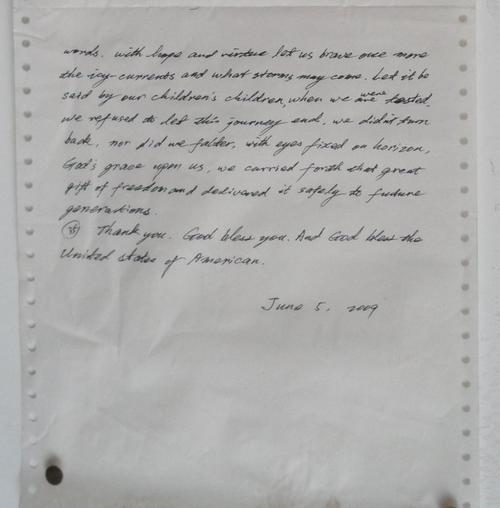 words. with hope and virtue let us brave once more
the icy currents and what storms may come. Let it be
said by our children's children, when we were tested,
we refused to let this journey end, we didn't turn
back, nor did we falter, with eyes fixed on horizon,
God's grace upon us, we carried forth that great
gift of freedom and delivered it safely to future
generations.
Thank you. God bless you. And God bless the
United states of American.
June 5, 2009